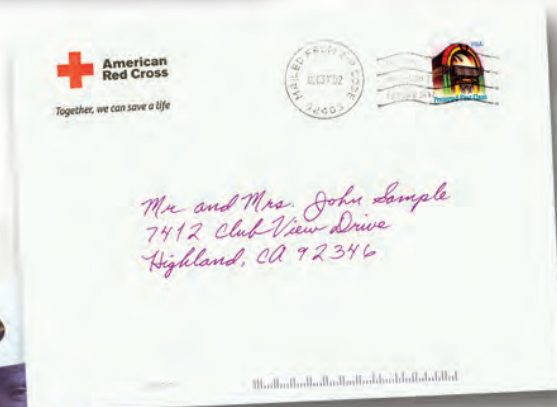 American
Red Cross
Together, we can save a life
MAILED FROM ZIP CODE
USA
Presorted First-Class
Mr and Mrs. John Sample
7412 Club View Drive
Highland, CA 92346